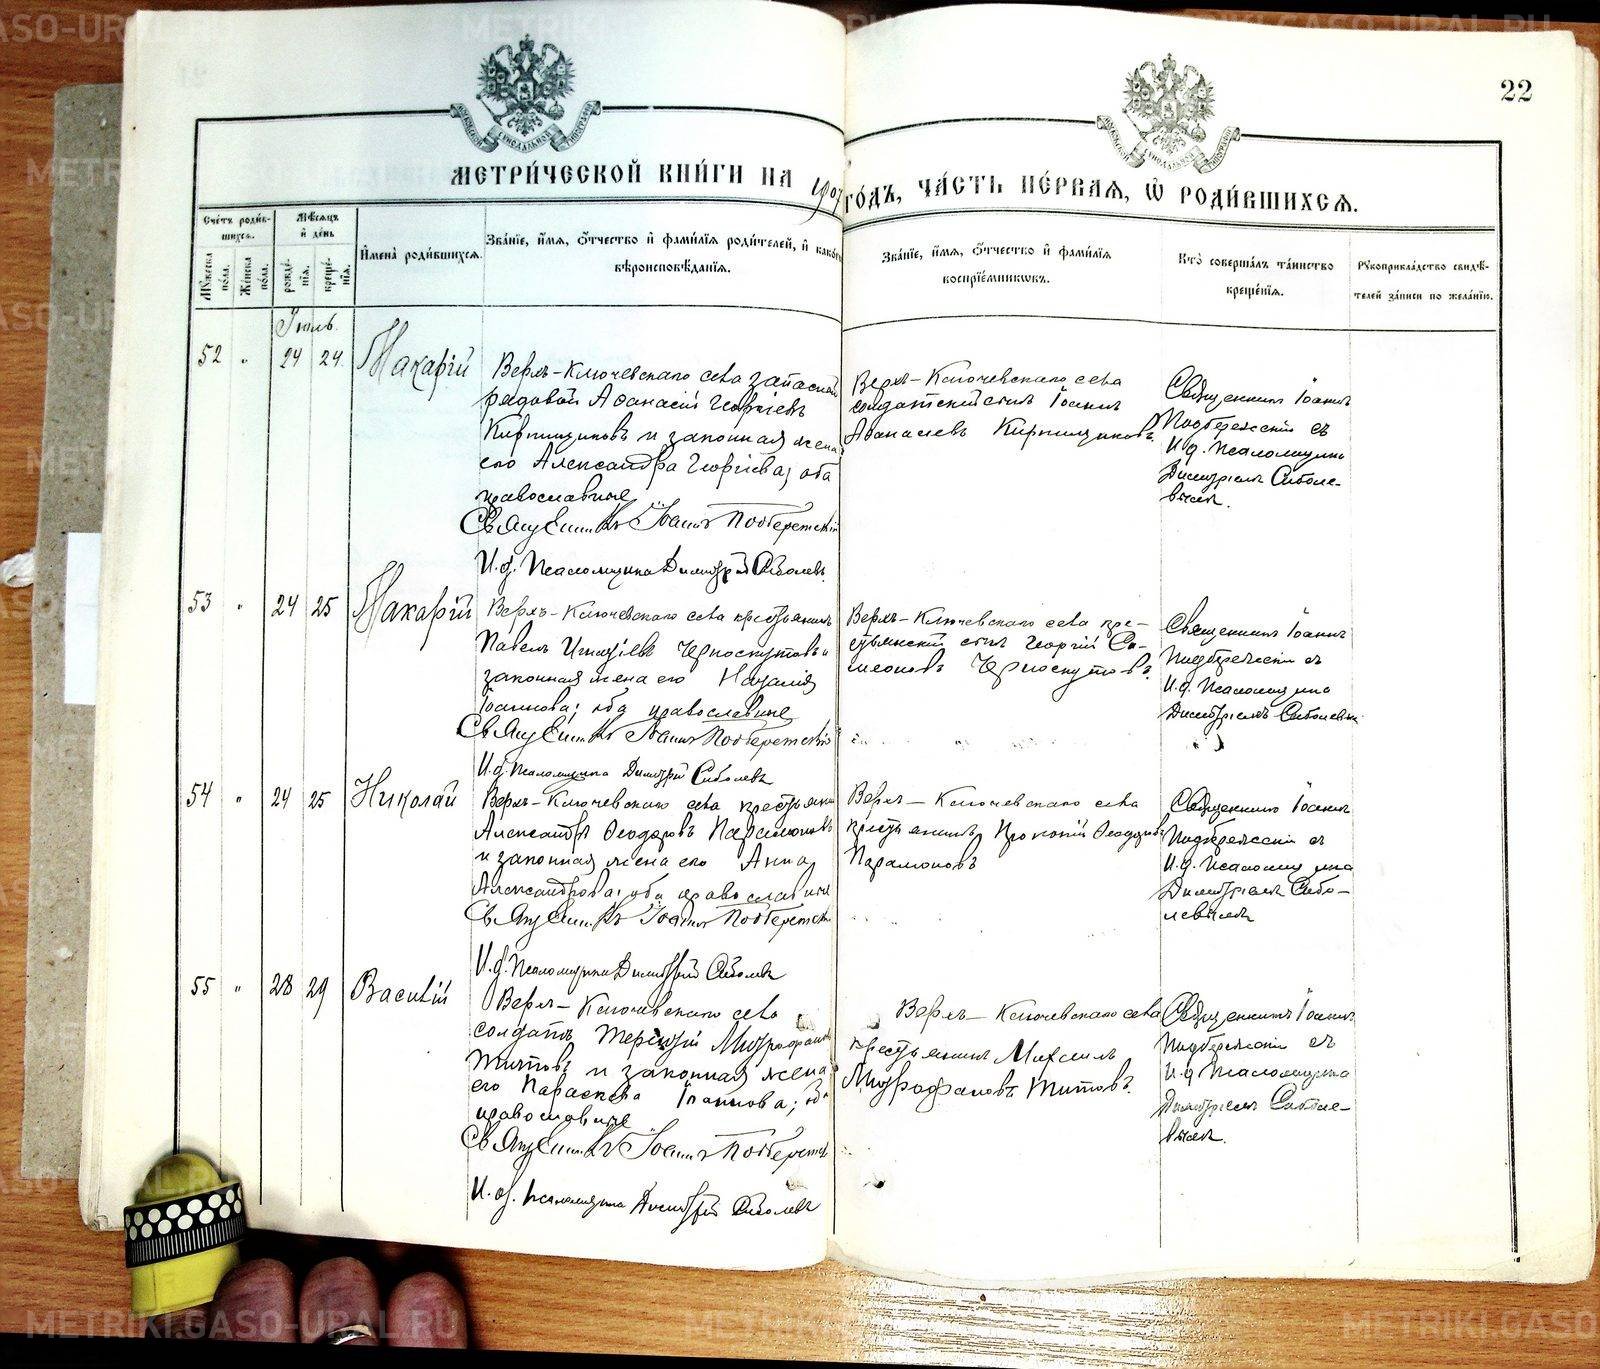 22
МЕТРИ́ЧЕСКОЙ КНИ́ГИ НА 1907 ГО́ДЪ, ЧА́СТЬ ПЕ́РВАЯ, Ѡ РОДИ́ВШИХСЯ.
Сче́тъ роди́вшихся.
Му́жеска по́ла.
Же́нска по́ла.
Мѣ́сяцъ и де́нь
рожде́нія.
креще́нія.
Имена̀ роди́вшихся.
Зва́ніе, и́мя, о́тчество и фами́лія роди́телей, и како́го
вѣроисповѣ́данія.
Зва́ніе, и́мя, о́тчество и фами́лія
воспріе́мниковъ.
Кто̀ соверша́лъ та́инство
креще́нія.
Рукоприкла́дство свидѣ́-
телей за́писи по жела́нію.
Іюль.
52 " 24 24 Макарій
Верхъ-Ключевскаго села запасной
рядовой Афанасій Георгіевъ
Кирпищиковъ и законная жена
его Александра Георгіева; оба
православные
Священникъ Іоаннъ Подбережскій
И.д. Псаломщика Димитрій Соболевъ
Верхъ-Ключевскаго села
солдатскій сынъ Іоаннъ
Афанасьевъ Кирпищиковъ.
Священникъ Іоаннъ
Подбережскій съ
И.д. Псаломщика
Димитріемъ Соболе-
вымъ.
53 " 24 25 Макарій
Верхъ-Ключевскаго села крестьянинъ
Павелъ Игнатіевъ Черноскутовъ и
законная жена его Наталія
Іоаннова; оба православные
Священникъ Іоаннъ Подбережскій
И.д. Псаломщика Димитрій Соболевъ
Верхъ-Ключевскаго села кре-
стьянскій сынъ Георгій Си-
меоновъ Черноскутовъ.
Священникъ Іоаннъ
Подбережскій съ
И.д. Псаломщика
Димитріемъ Соболевым
54 " 24 25 Николай
Верхъ-Ключевскаго села крестьянинъ
Александръ Феодоровъ Парамоновъ
и законная жена его Анна
Александрова; оба православные
Священникъ Іоаннъ Подбережскій
И.д. Псаломщика Димитрій Соболевъ
Верхъ-Ключевскаго села
крестьянинъ Прокопій Феодоровъ
Парамоновъ
Священникъ Іоаннъ
Подбережскій съ
И.д. Псаломщика
Димитріемъ Собо-
левымъ
55 " 28 29 Василій
Верхъ-Ключевскаго села
солдатъ Терентій Митрофановъ
Титовъ и законная жена
его Параскева Іоаннова; оба
православные
Священникъ Іоаннъ Подбережскій
И.д. Псаломщика Димитрій Соболевъ
Верхъ-Ключевскаго села
крестьянинъ Михаилъ
Митрофановъ Титовъ.
Священникъ Іоаннъ
Подбережскій съ
И.д. Псаломщика
Димитріемъ Соболе-
вымъ.
METRIKI.GASO-URAL.RU